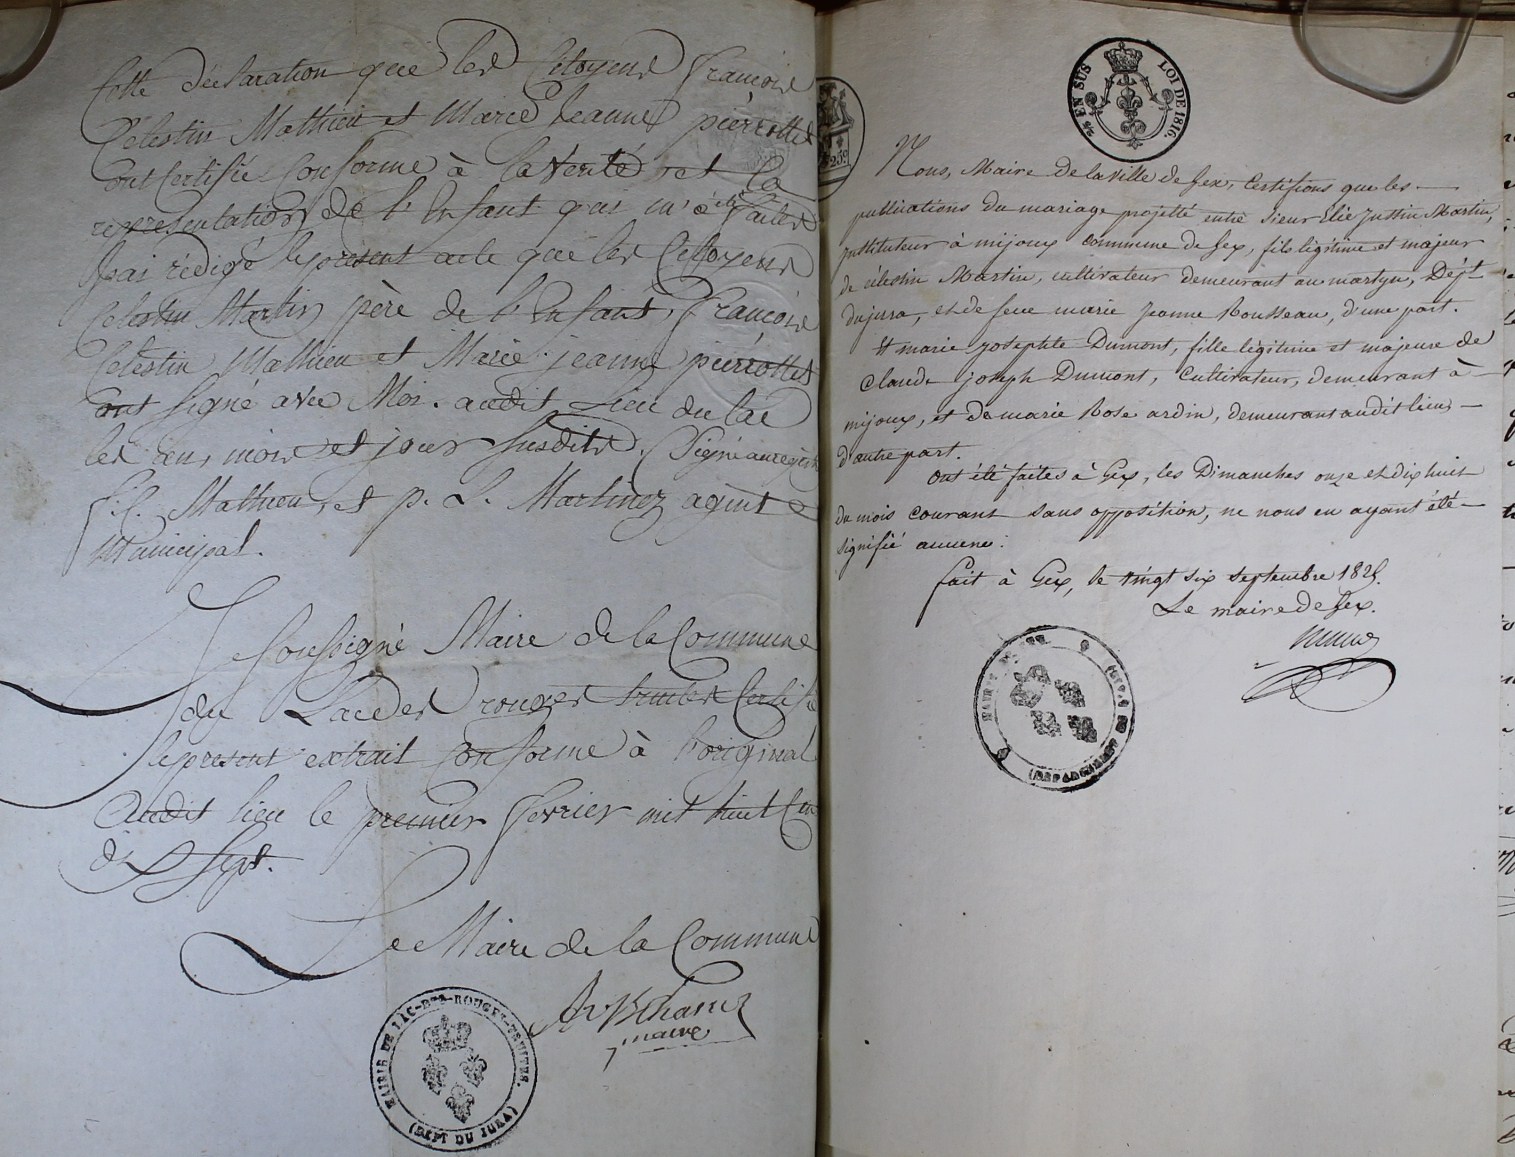 Cette déclaration que les Citoyens françois
Célestin Mathieu et Marie Jeanne pierrottet
ont Certifié Conforme à la vérité et la
représentation de l'Enfant qui m'a été faites
j'ai rédigé le présent acte que les Citoyens
Celestin Martin père de l'Enfant, françois
Celestin Mathieu et Marie jeanne pierrottet
ont signé avec Moi. audit Lieu du lac
les an, mois et jour susdits. Signé au registre
f. C. Mathieu, et p. L. Martinez agent
Municipal.
Je soussigné Maire de la Commune
du Lac des rouges truites Certifie
le present extrait conforme à l'original
Audit lieu le premier fevrier mil huit Cent
dix Sept.
Le Maire de la Commune
maire
MAIRIE DE LAC-DES-ROUGES-TRUITES.
(DEPT DU JURA)
25c
¼ EN SUS LOI DE 1816.
Nous, Maire de la ville de Gex, Certifions que les
publications du mariage projetté entre sieur Elie Justin Martin,
instituteur à mijoux commune de Gex, fils légitime et majeur
de célestin Martin, cultivateur demeurant au martyn, Dépt
du jura, et de feue marie Jeanne Rousseau, d'une part.
Et marie josephte Dumont, fille légitime et majeure de
Claude joseph Dumont, Cultivateur, demeurant à
mijoux, et de marie Rose ardin, demeurant audit lieu,
d'autre part.
Ont été faites à Gex, les Dimanches onze et dix huit
du mois courant sans opposition, ne nous en ayant été
signifié aucune.
fait à Gex, le vingt six septembre 1825.
Le maire de Gex.